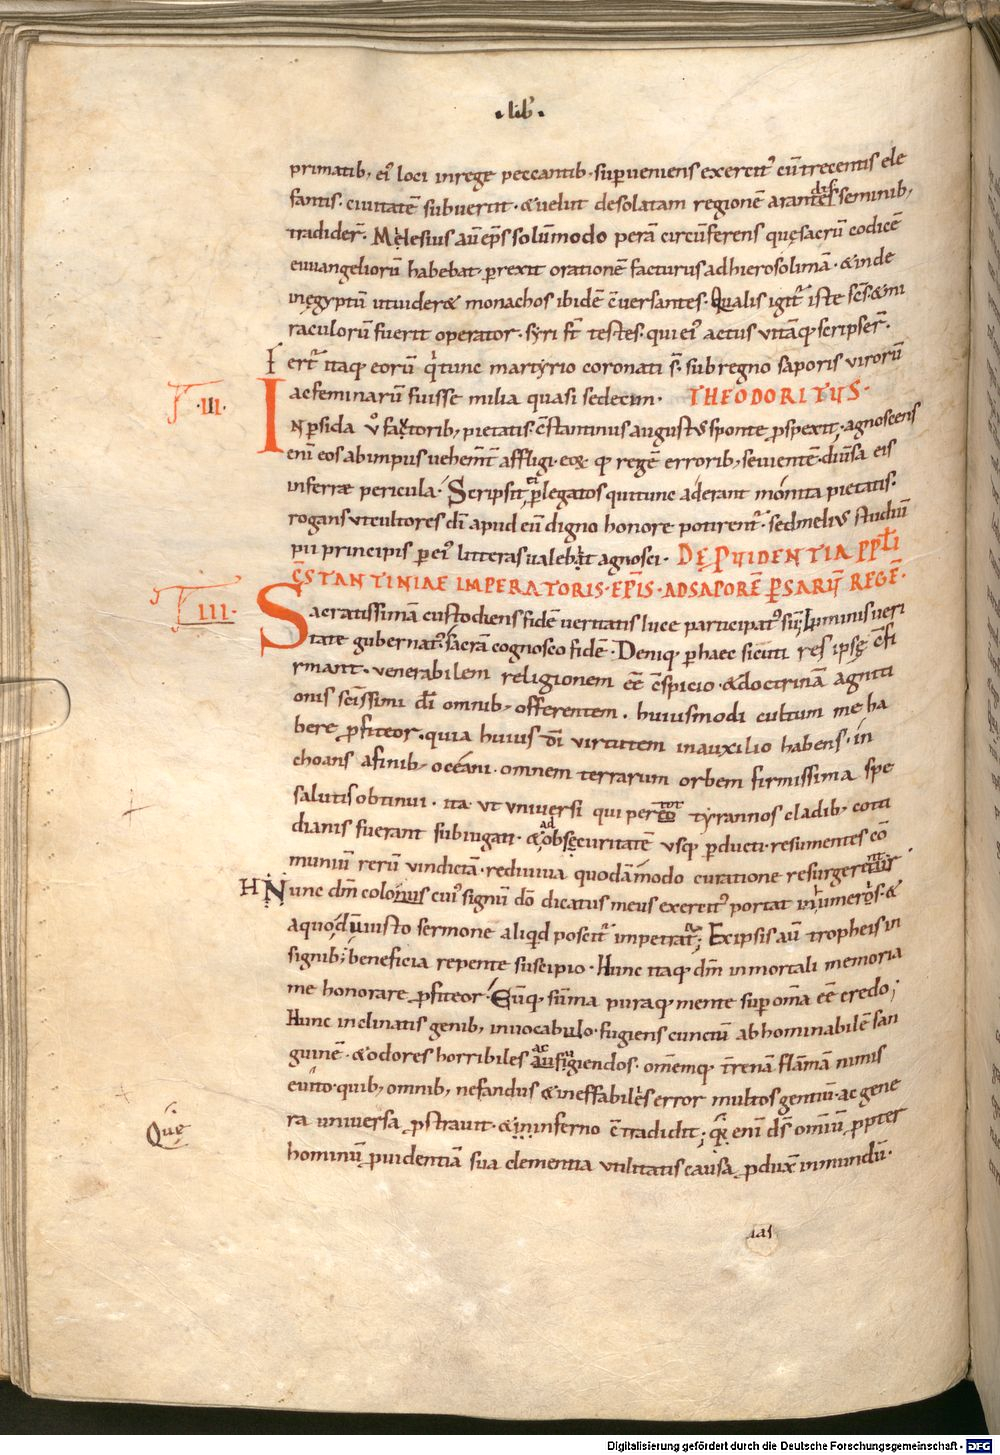 ·lib̅·
primatib; ei' loci inrege peccantib· sup̲ueniens exercit' cū trecentis ele
fantis· ciuitatē subuertit· &uelut desolatam regionē arant seminib;
tradider̅· Melesius aū ep̅s solūmodo peram circūferens quę sacrū codicē
euuangeliorū habebat· p̲rexit orationē facturus ad hierosolimā· &inde
inęgyptū ut uider& monachos ibidē c̅uersantes· Qualis igit' iste sc̅s &mi
raculorū fuerit operator· syri st̅ testes· qui ei' actus uitāq; scripser̅·
Fert' itaq; eorū q'tunc martyrio coronati s̅· sub regno saporis virorū
ac feminarū fuisse milia quasi sedecim· THEODORITUS·
·III· IN p̲sida v° fautorib; pietatis· c̅stantinus august' sponte p̲spexit· agnoscens
eni̅ eos ab impiis uehem̅t affligi· eoq; qd regē errorib; seruientē· diu̅sa eis
inferre pericula· Scripsit p̲ legatos qui tunc aderant monita pietatis·
rogans ut cultores di̅ apud eū digno honore potirent'· sed meli' studiū
pii principis p̲ ei' litteras ualebit agnosci· DE P̲UIDENTIA P̲P̲L̅I
C̅STANTINIAE IMPERATORIS· EP̅IS· AD SAPORĒ P̲SARŪ REGĒ·
IIII· Sacratissimā custodiens fidē ueritatis luce participat' sū; Lumine ueri
tate gubernat' sacrā cognosco fidē· Deniq; p̲ haec sicuti res ipsę c̅fi
rmant· venerabilem religionem ee̅ c̅spicio· &doctrinā agniti
onis sc̅issimi di̅ omnib; offerentem· huiusmodi cultum me ha
bere p̲fiteor· quia huius di̅ virtutem inauxilio habens· in
choans afinib; oceani· omnem terrarum orbem firmissima spe
salutis obtinui· ita ut vniuersi qui per tot tyrannos cladib; coti
dianis fuerant subiugati· &ad obscuritatē vsq; p̲ducti· resumentes co̅
muniū rerū vindictā· rediuiua quodāmodo curatione resurgerent
HNunc dm̅ colo cui' signū do̅ dicatus meus exercit' portat in umeris· &
aquo dū iusto sermone aliqid poscit' impetrat'; Ex ipsis aū tropheis in
signib; beneficia repente suscipio· Hunc itaq; dm̅ inmortali memoria
me honorare p̲fiteor· Eūq; sūma puraq; mente sup̲ om̅a ee̅ credo;
Hunc inclinatis genib; inuocabulo· fugiens cunctū abhominabilē san
guinē· &odores horribiles ac fugiendos· om̅emq; t̅renā flāmā nimis
euito· quib; omnib; nefandus &ineffabilis error multos gentiū· ac gene
ra vniuersa p̲strauit· &in inferno c̅tradidit; eni̅ ds̅ omiū p̲pter
hominū p̲uidentiā sua clementia vtilitatis causa p̲dux̅ inmundū·
Quę
ias
Digitalisierung gefördert durch die Deutsche Forschungsgemeinschaft - DFG